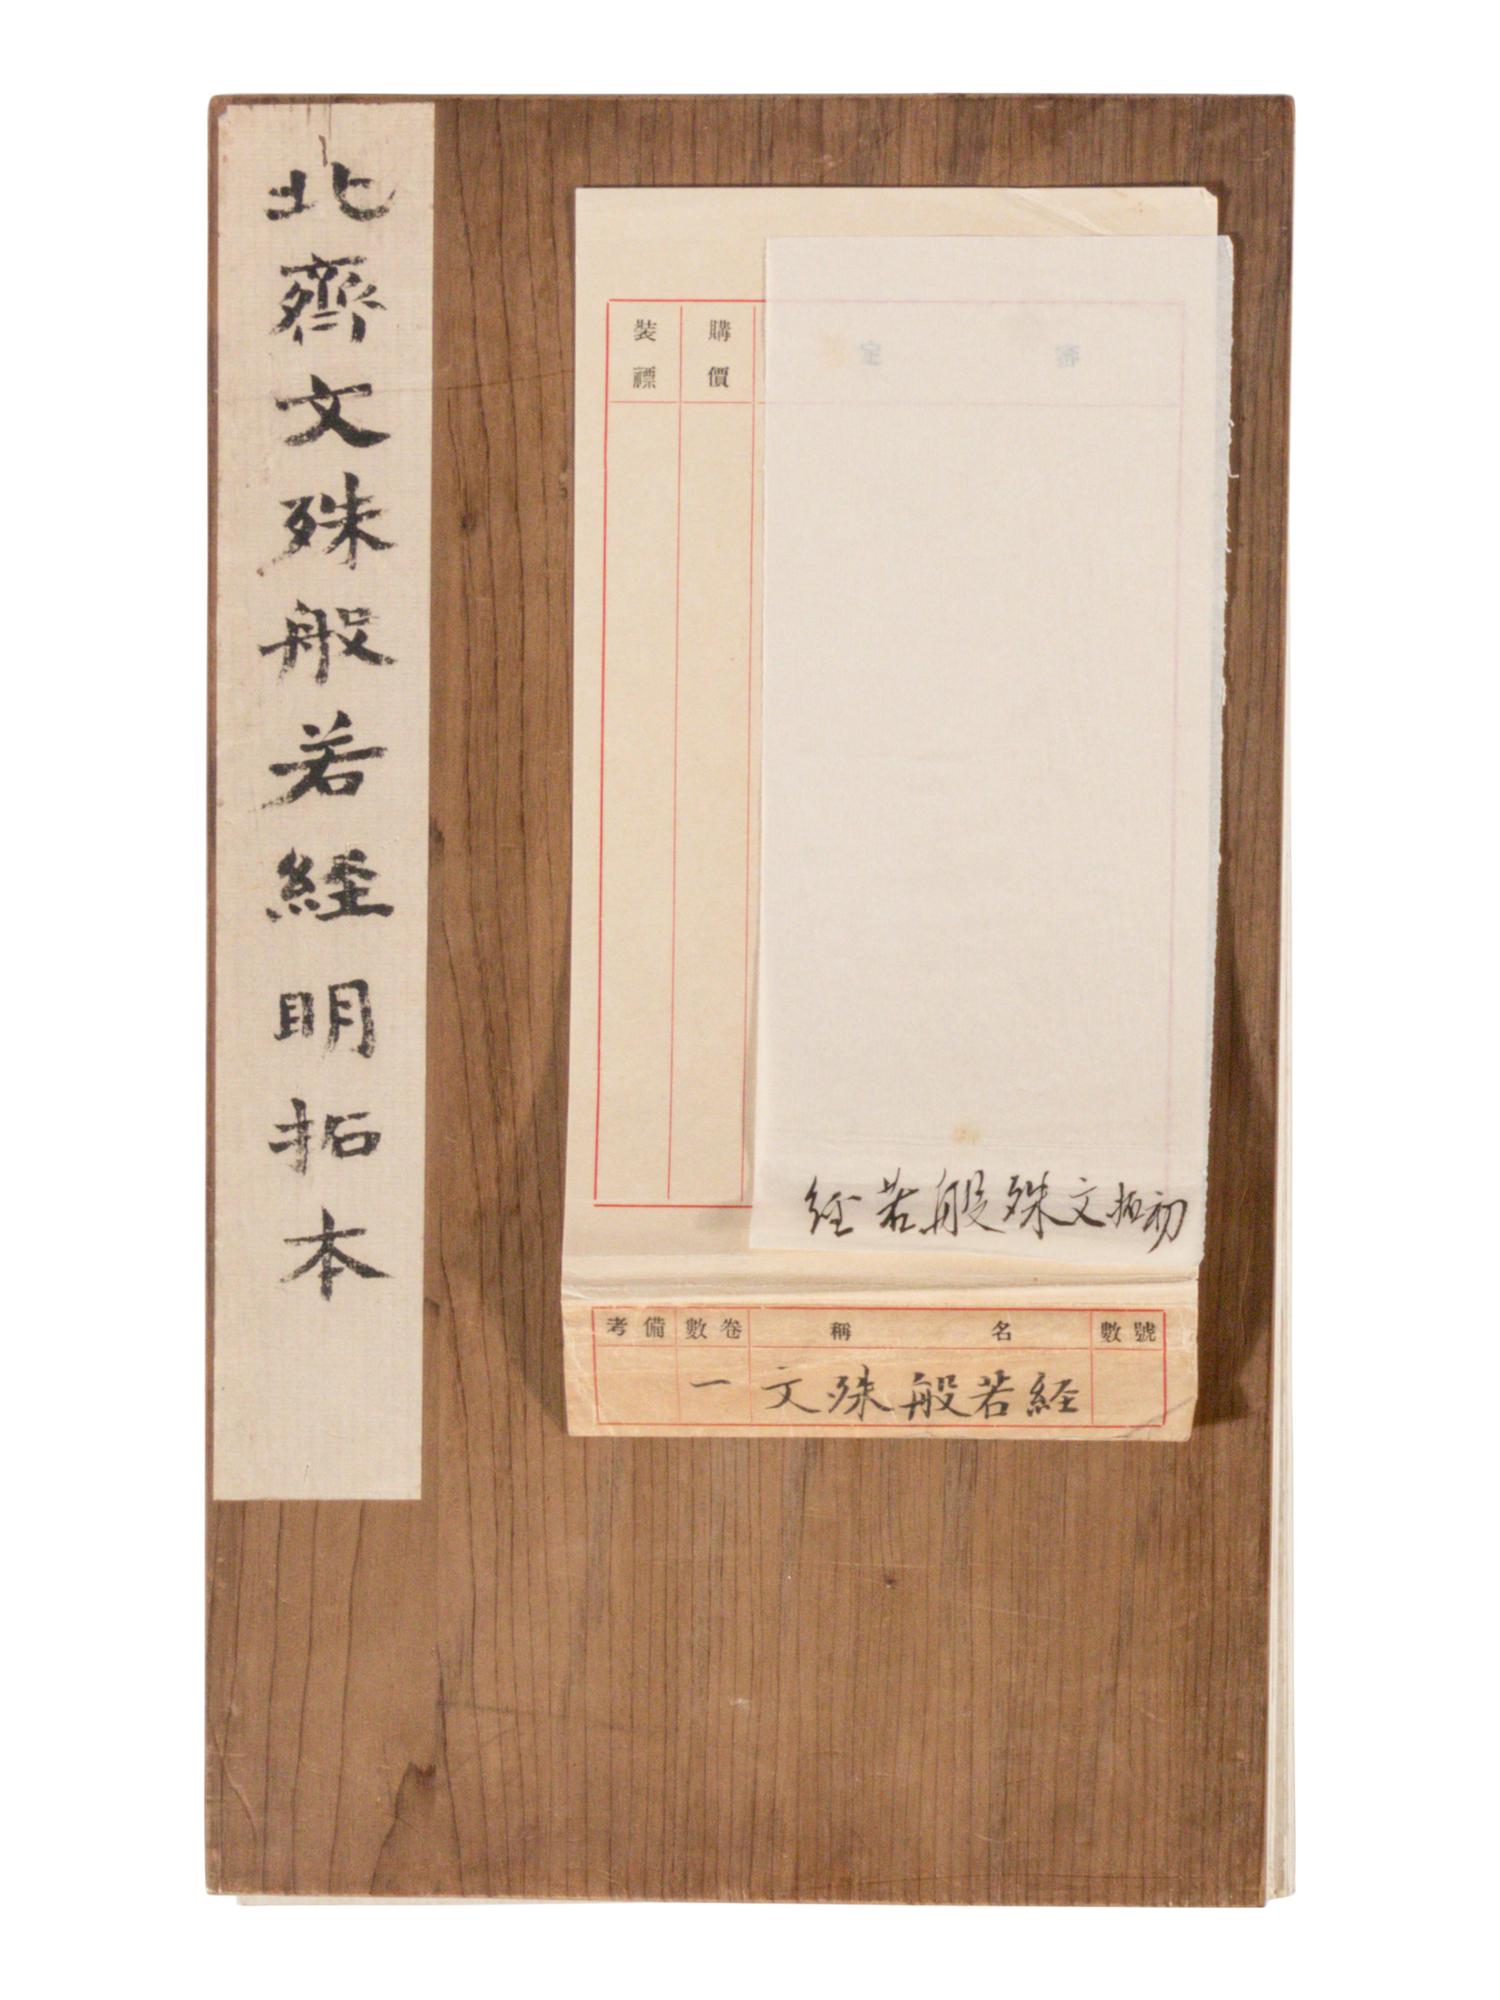 北齊文殊般若經明拓本
審定
購價
裝褾
初拓文殊般若経
號數
名稱
卷數
備考
文殊般若経
一